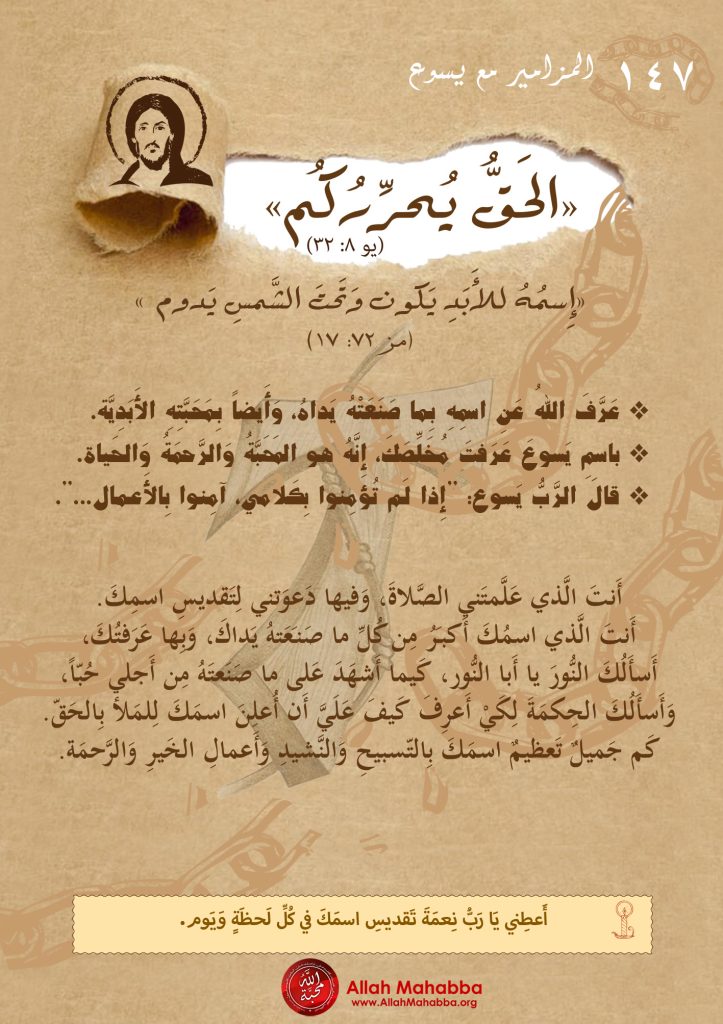 ١٤٧ المزامير مع يسوع
«الحَقُّ يُحرِّرُكُم»
(يو ٨: ٣٢)
«إِسمُهُ للأَبَدِ يَكون وَتَحتَ الشَّمسِ يَدوم »
(مز ٧٢: ١٧)
❖ عَرَّفَ اللهُ عَن اسمِهِ بما صَنَعَتْهُ يَداهُ، وَأَيضاً بِمَحَبَّتِهِ الأَبَدِيَّة.
❖ باسمِ يَسوعَ عَرَفتَ مُخَلِّصَكَ، إِنَّهُ هو المَحَبَّةُ وَالرَّحمَةُ وَالحَياة.
❖ قالَ الرَّبُّ يَسوع: "إِذا لَم تُؤمِنوا بِكَلامي، آمِنوا بِالأَعمال...".
أَنتَ الَّذي عَلَّمتَني الصَّلاةَ، وَفيها دَعوَتني لِتَقديسِ اسمِكَ.
أَنتَ الَّذي اسمُكَ أَكبَرُ مِن كُلِّ ما صَنَعَتهُ يَداكَ، وَبِها عَرَفتُكَ،
أَسأَلُكَ النُّورَ يا أَبا النُّور، كَيما أَشهَدَ عَلى ما صَنَعتَهُ مِن أَجلي حُبّاً،
وَأَسأَلُكَ الحِكمَةَ لِكَيْ أَعرِفَ كَيفَ عَلَيَّ أَن أُعلِنَ اسمَكَ لِلمَلأ بِالحَقّ.
كَم جَميلٌ تَعظيمٌ اسمَكَ بِالتّسبيحِ وَالنَّشيدِ وَأَعمالِ الخَيرِ وَالرَّحمَة.
أَعطِني يَا رَبُّ نِعمَةَ تَقديسِ اسمَكَ في كُلِّ لَحظَةٍ وَيَوم.
الله محبة
Allah Mahabba
www.AllahMahabba.org